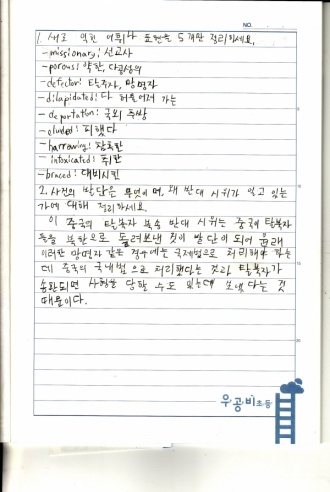 NO.
1. 새로 익힌 어휘나 표현을 5개만 정리하세요.
- missionary: 선교사
- porous: 약한, 다공성의
- defector: 탈주자, 망명자
- dilapidated: 다 허물어져 가는
- deportation: 국외 추방
- eluded: 피했다
- harrowing: 참혹한
- intoxicated: 취한
- braced: 대비시킨
2. 사건의 발단은 무엇이며, 왜 반대 시위가 일고 있는
가에 대해 정리하세요.
이 중국의 탈북자 북송 반대 시위는 중국이 탈북자
들을 북한으로 돌려보낸 것이 발단이 되어 원래
이러한 망명자 같은 경우에는 국제법으로 처리해야 하는
데 중국의 국내법으로 처리했다는 것과 탈북자가
송환되면 사형을 당할 수도 있는데 보냈다는 것
때문이다.
우공비초등